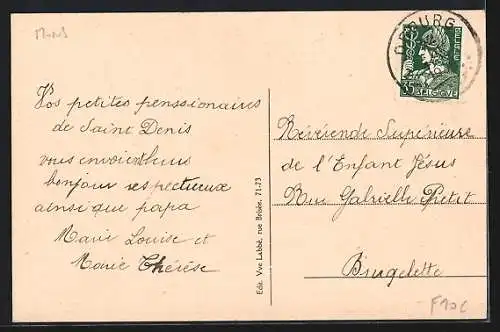 Mons
Vos petites penssionaires
de Saint Denis
vous envoient
bonjour respectueux
ainsi que papa
Marie Louise et
Marie Thérèse
Edit. Vve Labbé, rue Brisée, 71-73
OBOURG
BELGIE
35c
BELGIQUE
Révérende Supérieure
de l'Enfant Jésus
Rue Gabrielle Petit
Brugelette
F10c